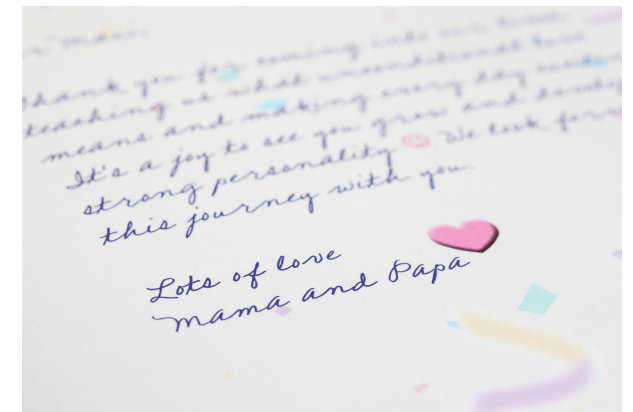 thank you for coming into our lives,
teaching us what unconditional love
means and making every day
It's a joy to see you grow and develop
strong personality We look
this journey with you.
Lots of love
Mama and Papa